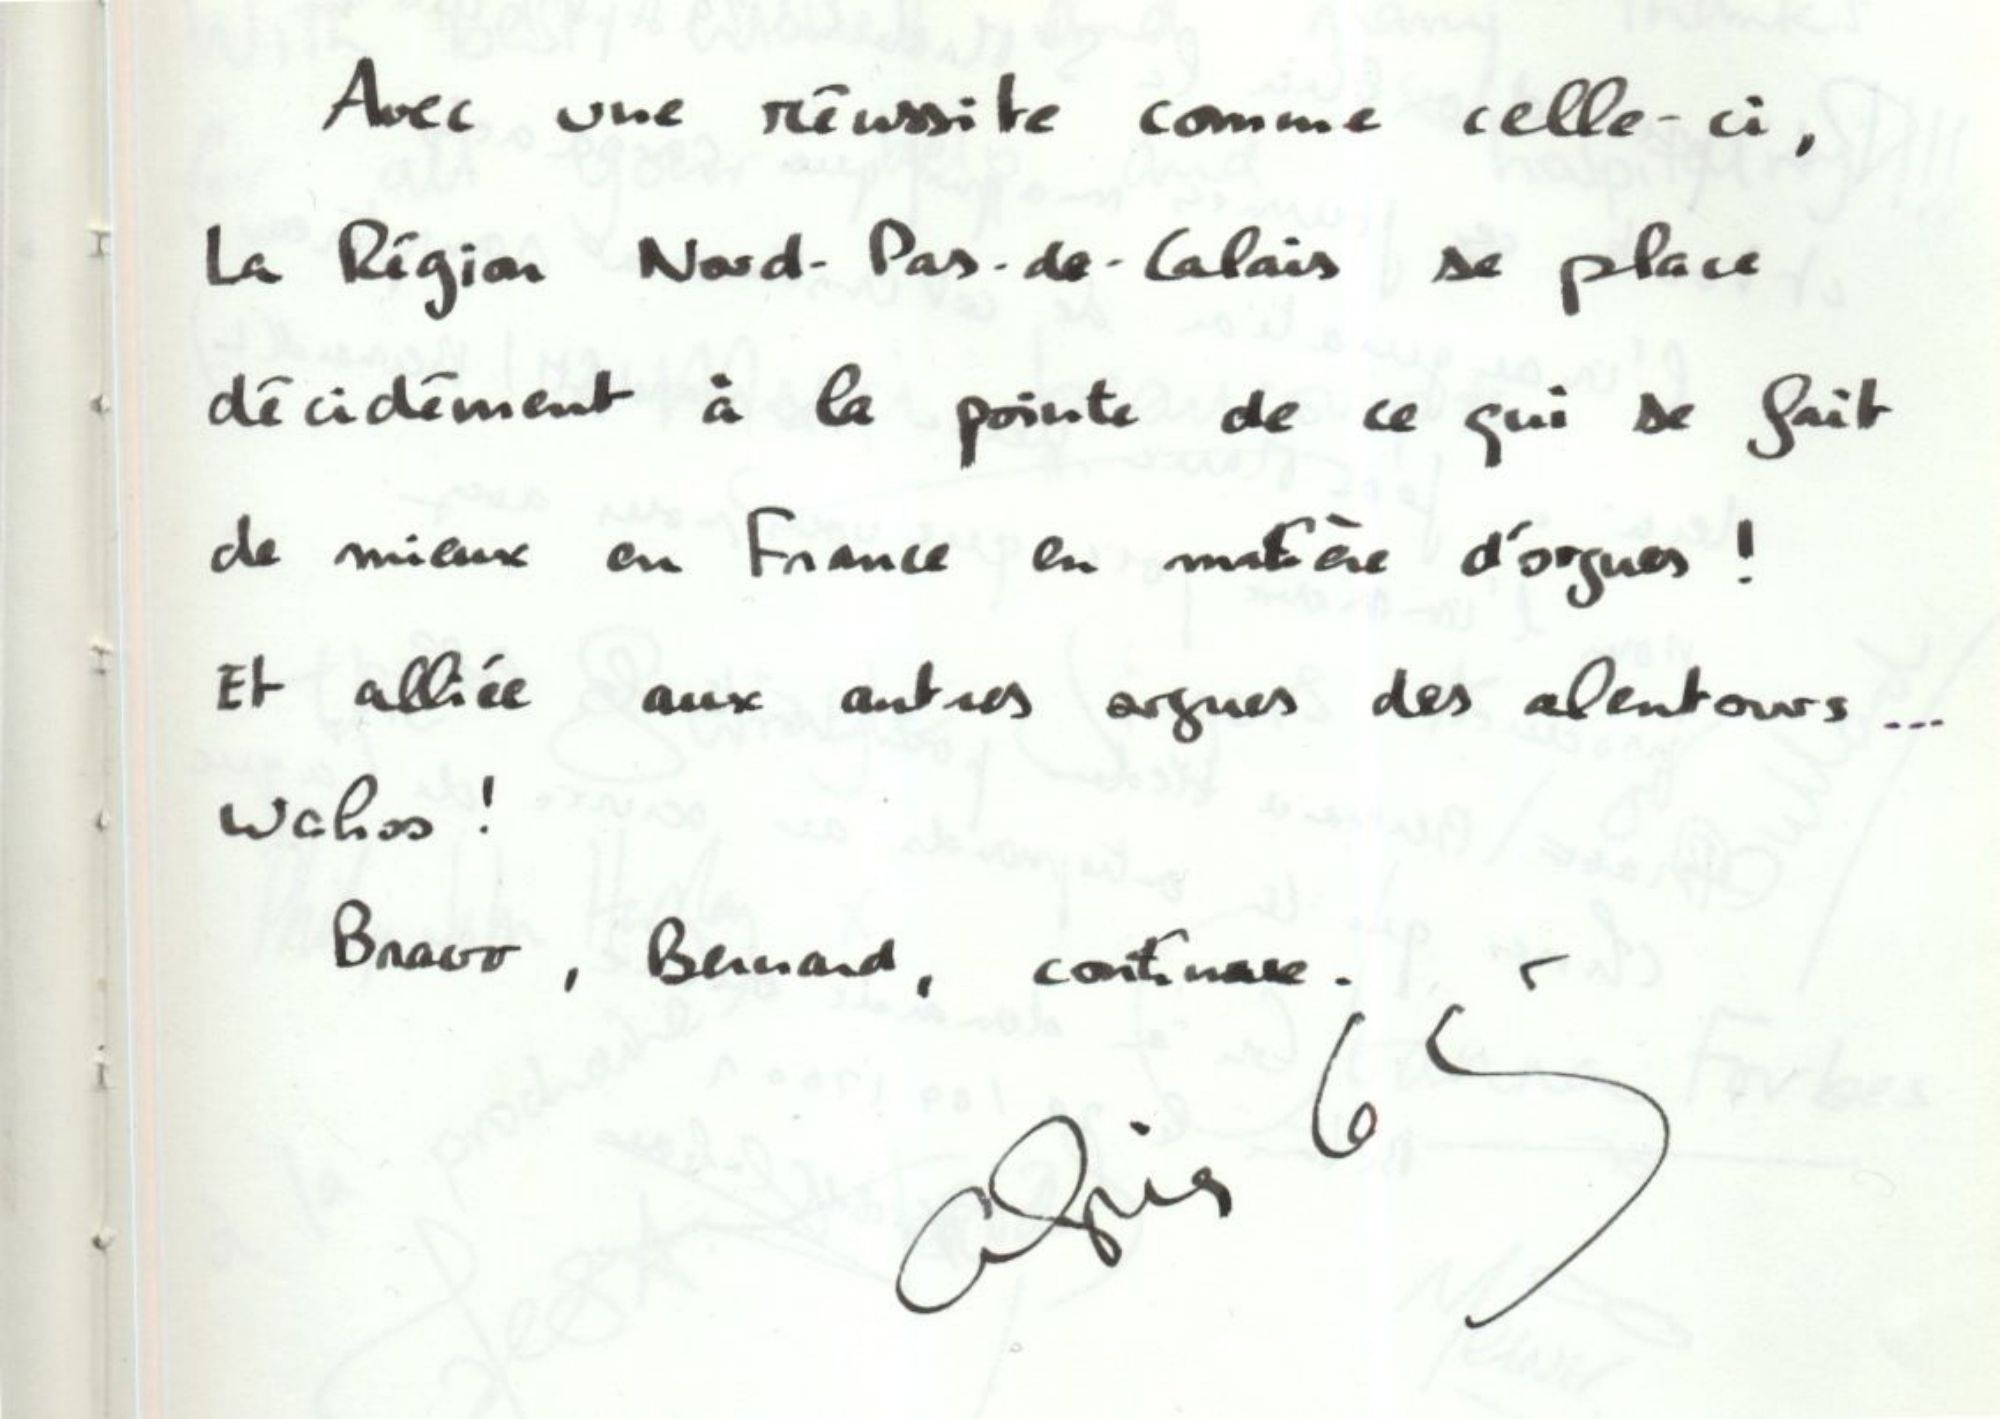 Avec une réussite comme celle-ci,
La Région Nord-Pas-de-Calais se place
décidément à la pointe de ce qui se fait
de mieux en France en matière d'orgues !
Et alliée aux autres orgues des alentours ...
Wahoo !
Bravo, Bernard, continue.